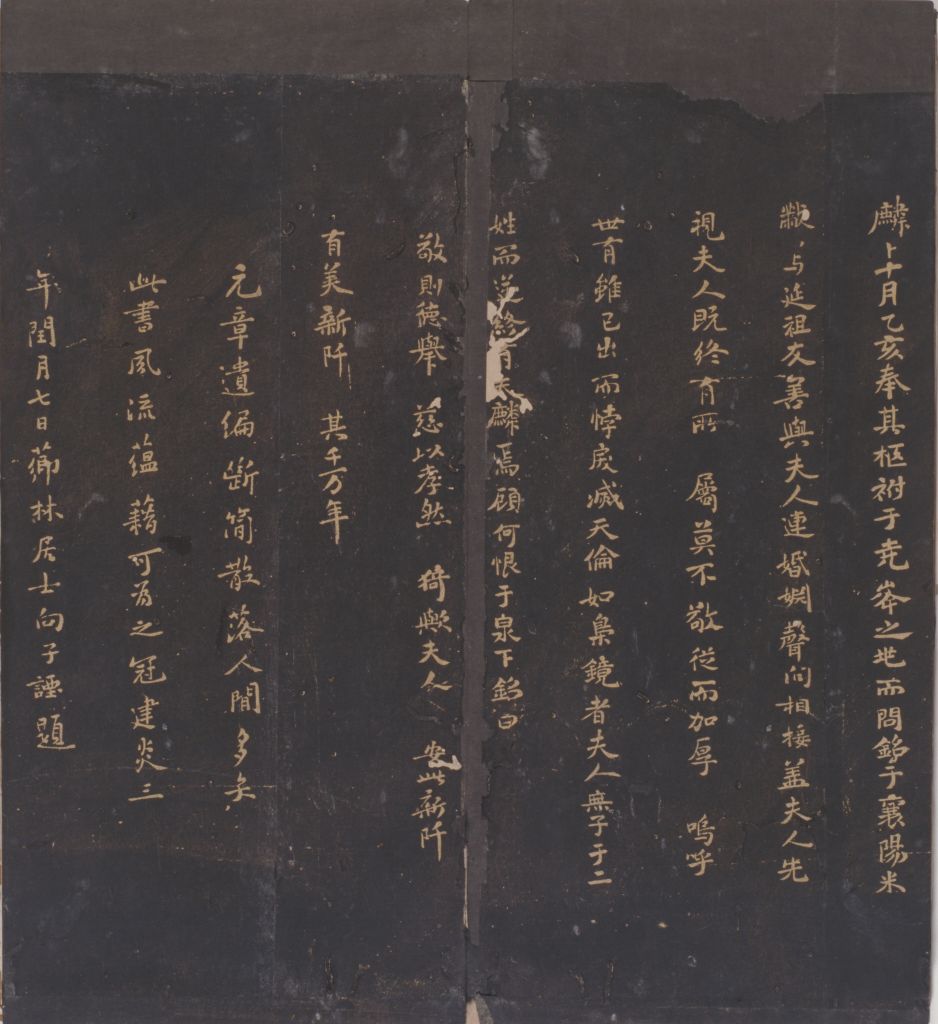 麟卜十月乙亥奉其柩祔于堯峯之地而問銘于襄陽米
黻〻与延祖友善與夫人連婚姻聲問相接盖夫人先
視夫人既終有所屬莫不敬從而加厚嗚呼
世有雖已出而悖戾滅天倫如梟鏡者夫人無子于二
姓而送終有夫麟焉顧何恨于泉下銘曰
敬則德舉慈以孝然猗歟夫人安此新阡
有美新阡其千万年
元章遺編斷簡散落人間多矣
此書風流蘊藉可為之冠建炎三
年閏月七日薌林居士向子諲題